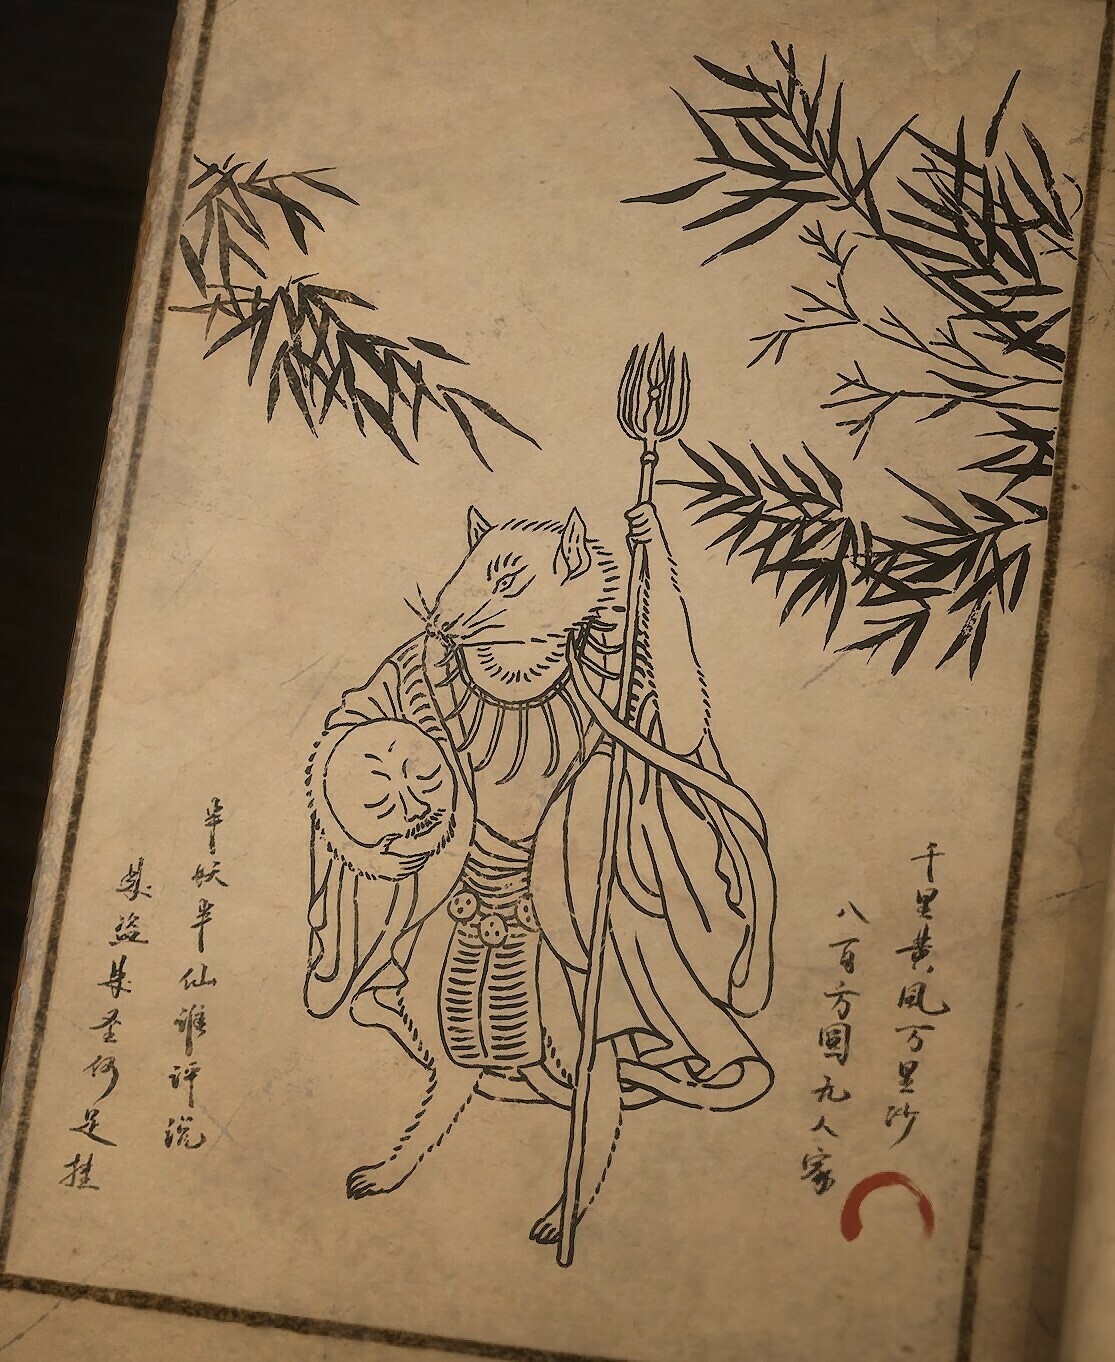 千里黄风万里沙
八百方圆无人家
半妖半仙谁评说
某盗某圣何足挂